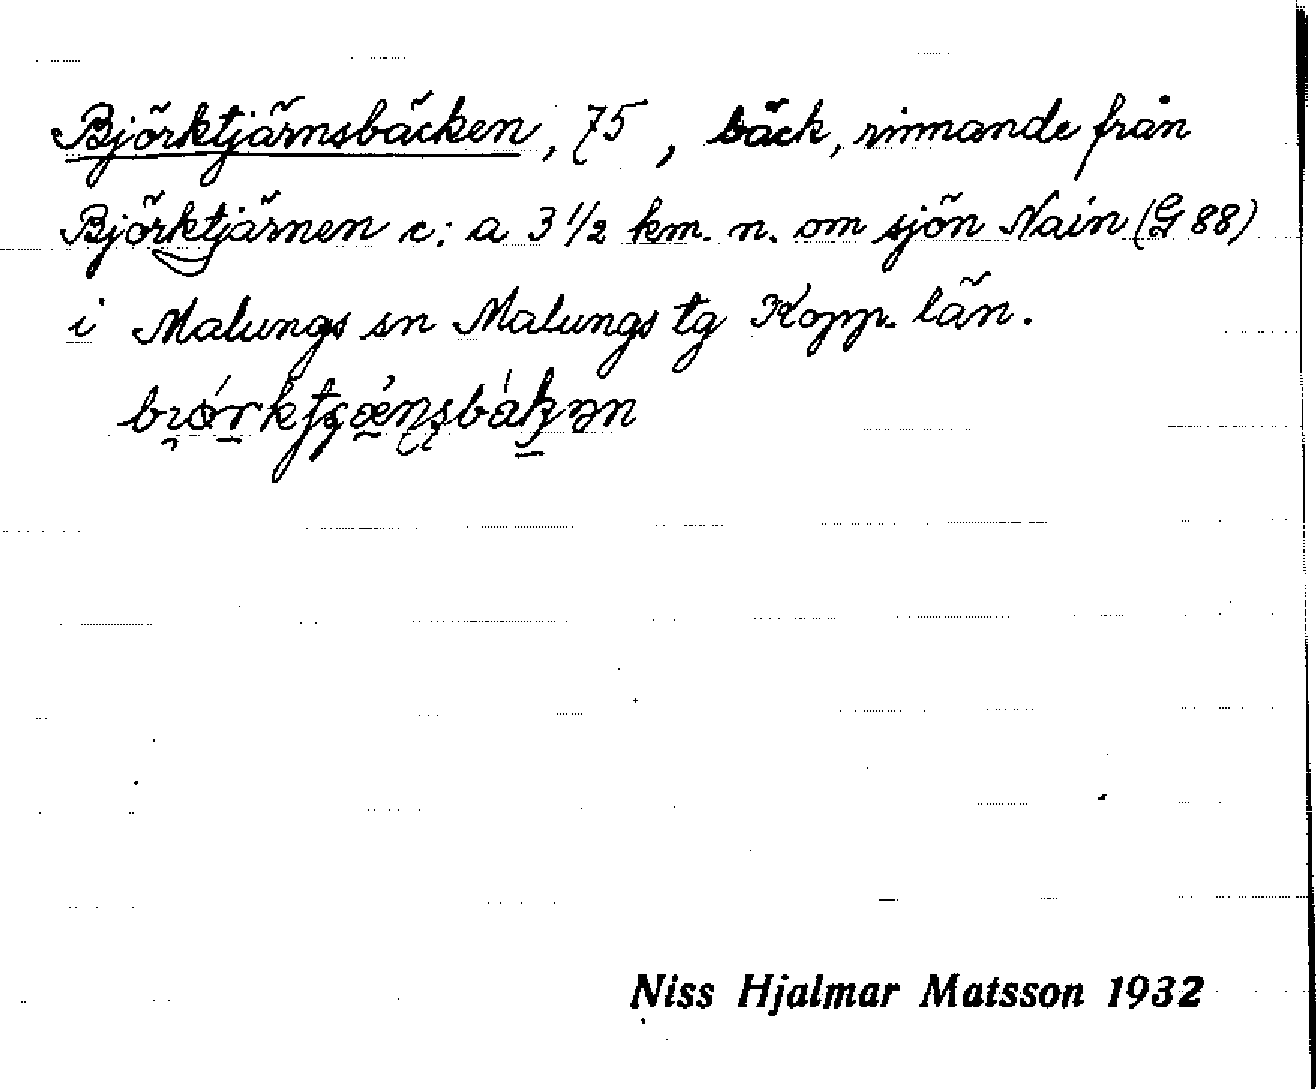 Björktjärnsbäcken, 75, bäck, rinnande från
Björktjärnen c:a 3 1/2 km. n. om sjön Nain (G 88)
i Malungs sn Malungs tg Kopp. län.
Niss Hjalmar Matsson 1932